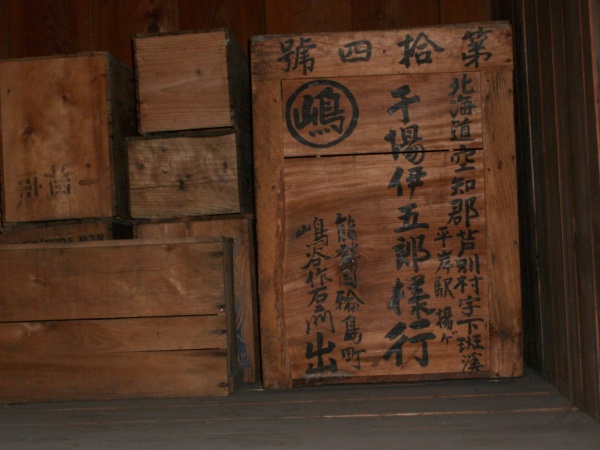 第拾四號
北海道空知郡芦別村字下班溪
平岸駅揚ゲ
千場伊五郎様行
嶋
能登国輪島町
嶋谷作右衛門出